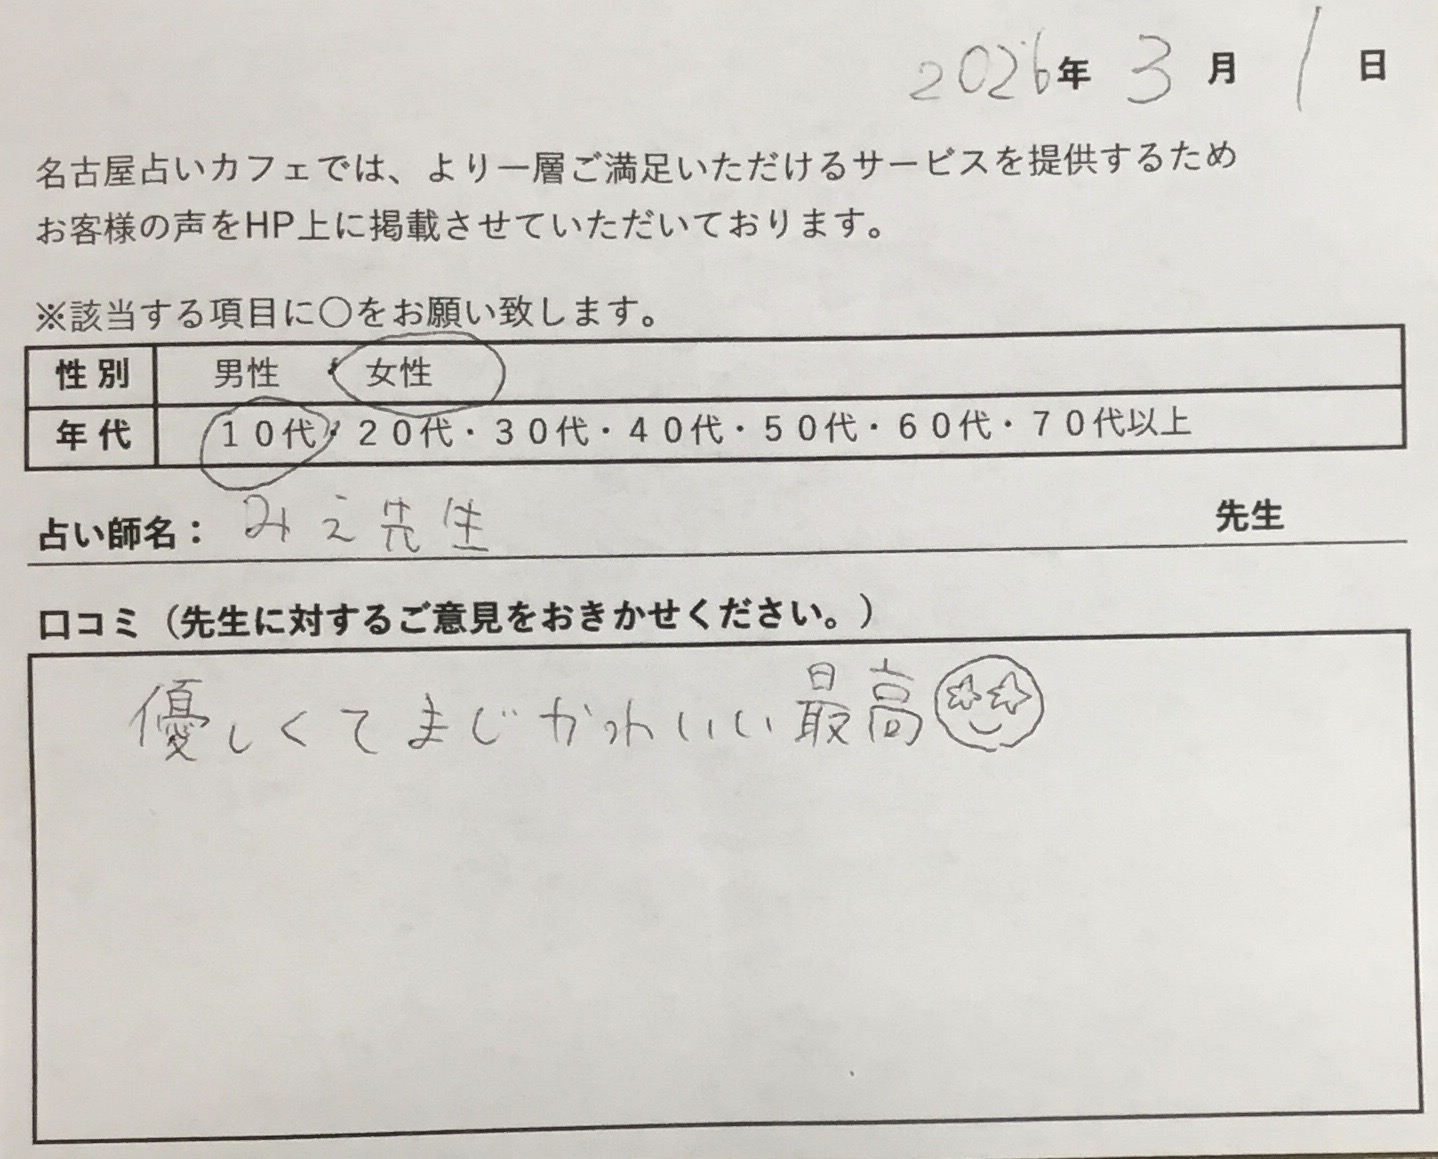 2026年 3月 1日
名古屋占いカフェでは、より一層ご満足いただけるサービスを提供するため
お客様の声をHP上に掲載させていただいております。
※該当する項目に○をお願い致します。
性別 男性 ・ 女性
年代 10代・20代・30代・40代・50代・60代・70代以上
占い師名： みえ先生 先生
口コミ（先生に対するご意見をおきかせください。）
優しくてまじかわいいい最高